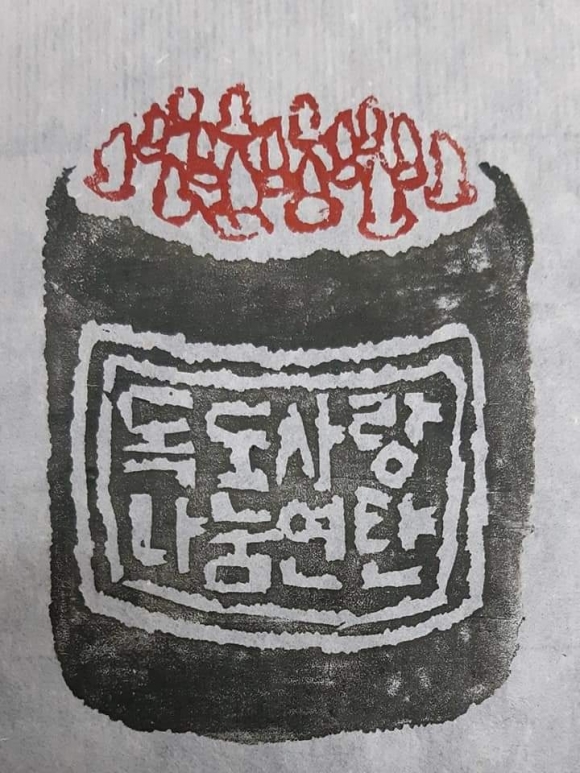 독도사랑
나눔연탄